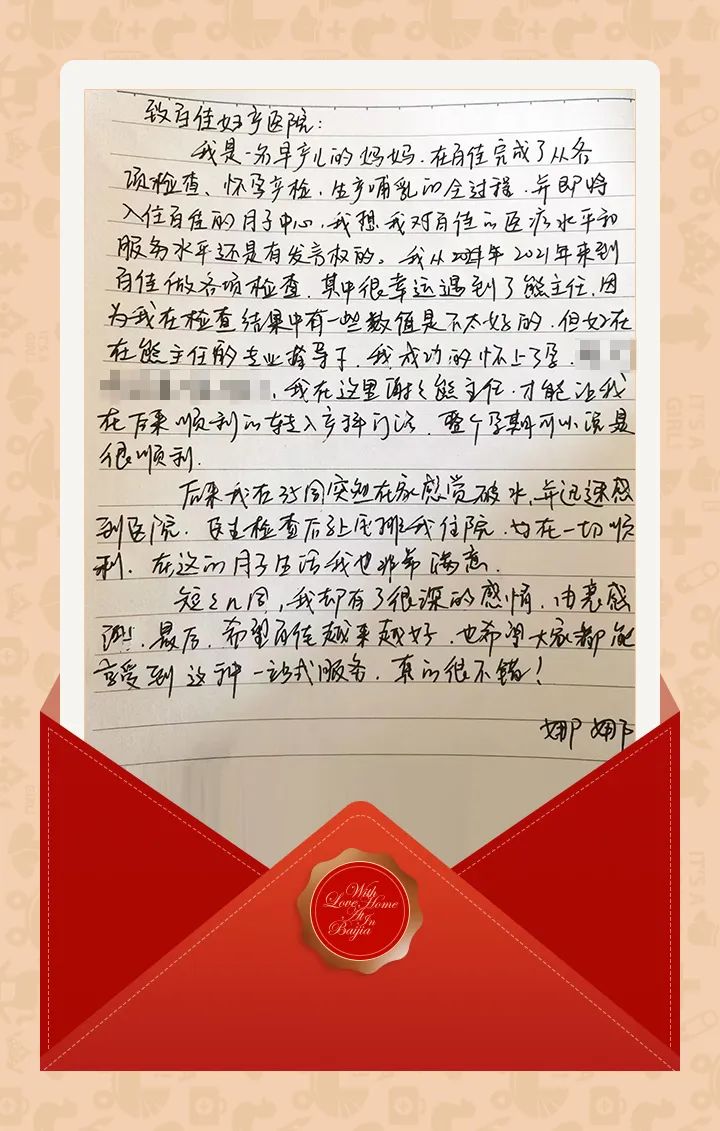 致百佳妇产医院：
我是一名早产儿的妈妈，在百佳完成了从各
项检查、怀孕产检、生产哺乳的全过程，并即将
入住百佳的月子中心，我想我对百佳的医疗水平和
服务水平还是有发言权的。我从2021年来到
百佳做各项检查，其中很幸运遇到了熊主任，因
为我在检查结果中有一些数值是不太好的，但好在
在熊主任的专业指导下，我成功的怀上了孕，
，我在这里谢谢熊主任，才能让我
在后来顺利的转入产科门诊，整个孕期可以说是
很顺利．
后来我在35周突然在家感觉破水，并迅速感
到医院．医生检查后给安排我住院，好在一切顺
利．在这的月子生活我也非常满意．
短短几周，我却有了很深的感情，由衷感
谢．最后，希望百佳越来越好，也希望大家都能
享受到这种一站式服务，真的很不错！
娜娜
With
Love, Home
At In
Baijia
IT'S A
GIRL
IT'S A